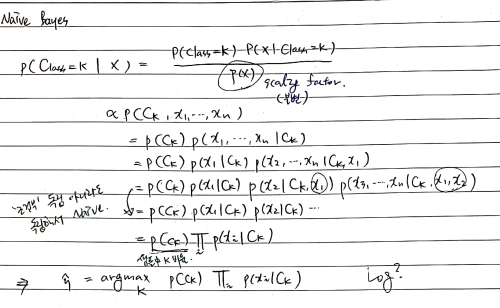 Naive Bayes
p(Class=k | X) = p(Class=k) p(x | Class=k) / p(x)
scaling factor.
(불변)
∝ p(Ck, x1, ⋯, xn)
= p(Ck) p(x1, ⋯, xn | Ck)
= p(Ck) p(x1 | Ck) p(x2, ⋯, xn | Ck, x1)
= p(Ck) p(x1 | Ck) p(x2 | Ck, x1) p(x3, ⋯, xn | Ck, x1, x2)
독립 아니라도
Naive.
= p(Ck) p(x1 | Ck) p(x2 | Ck) ⋯
= p(Ck) ∏i p(xi | Ck)
⇒ ŷ = argmax k p(Ck) ∏i p(xi | Ck) log?